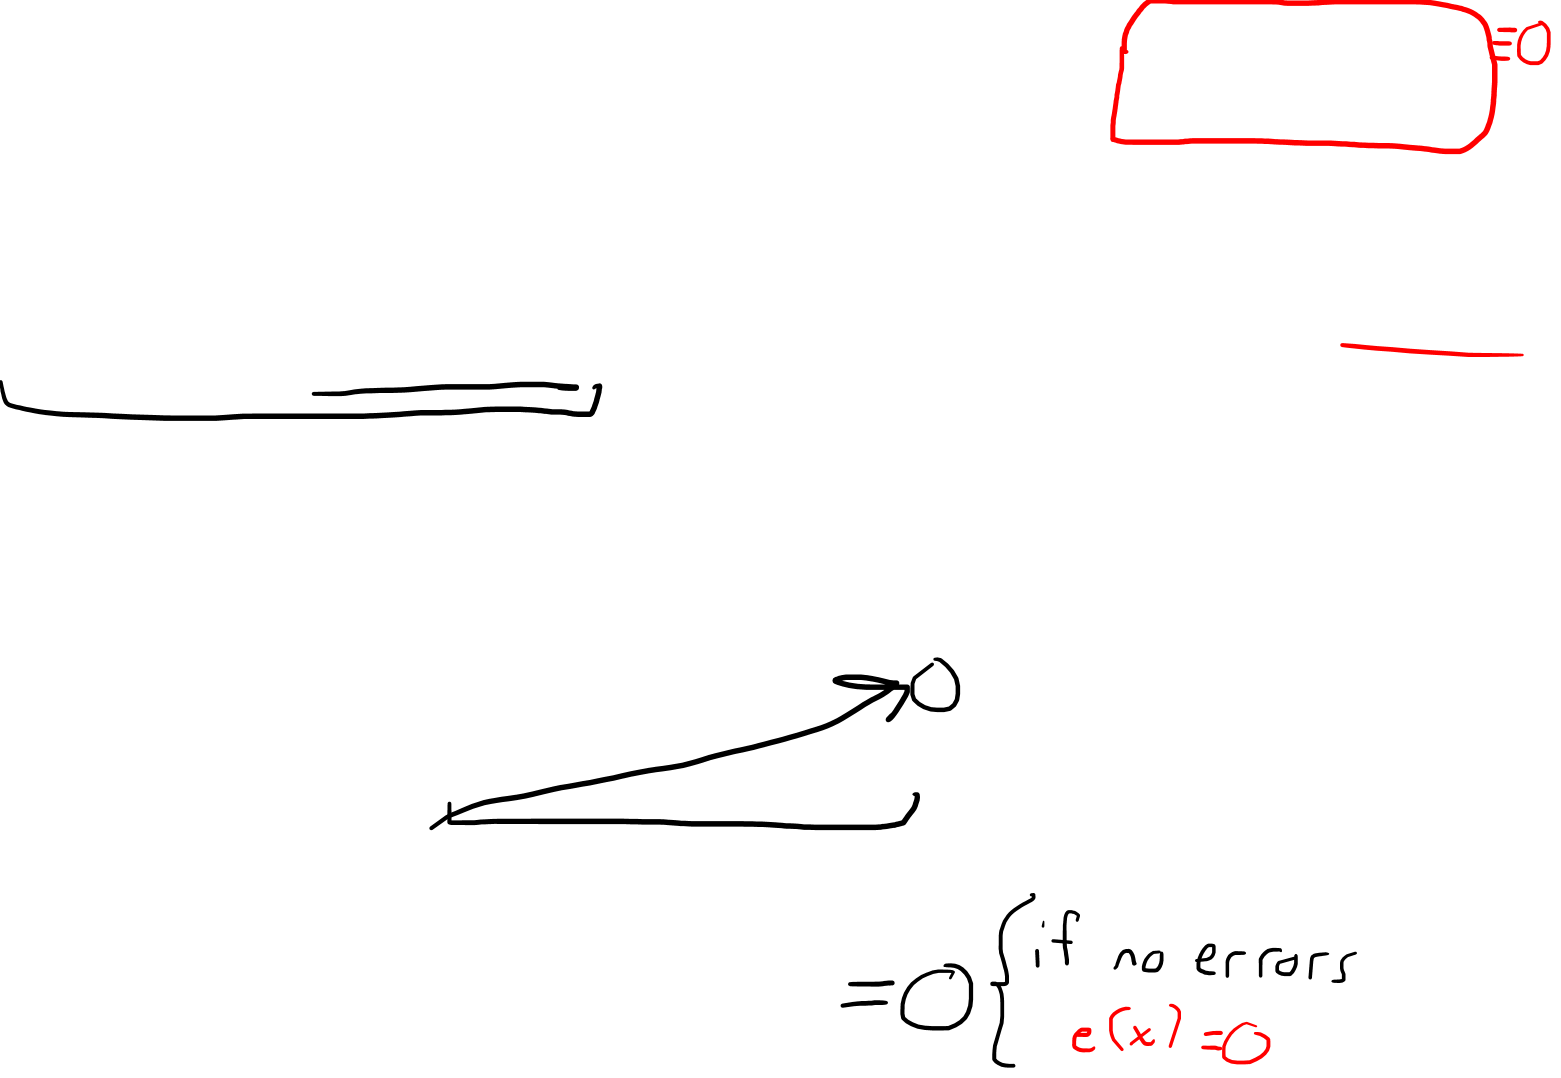 ≡0
0
=0 { if no errors
e(x) = 0